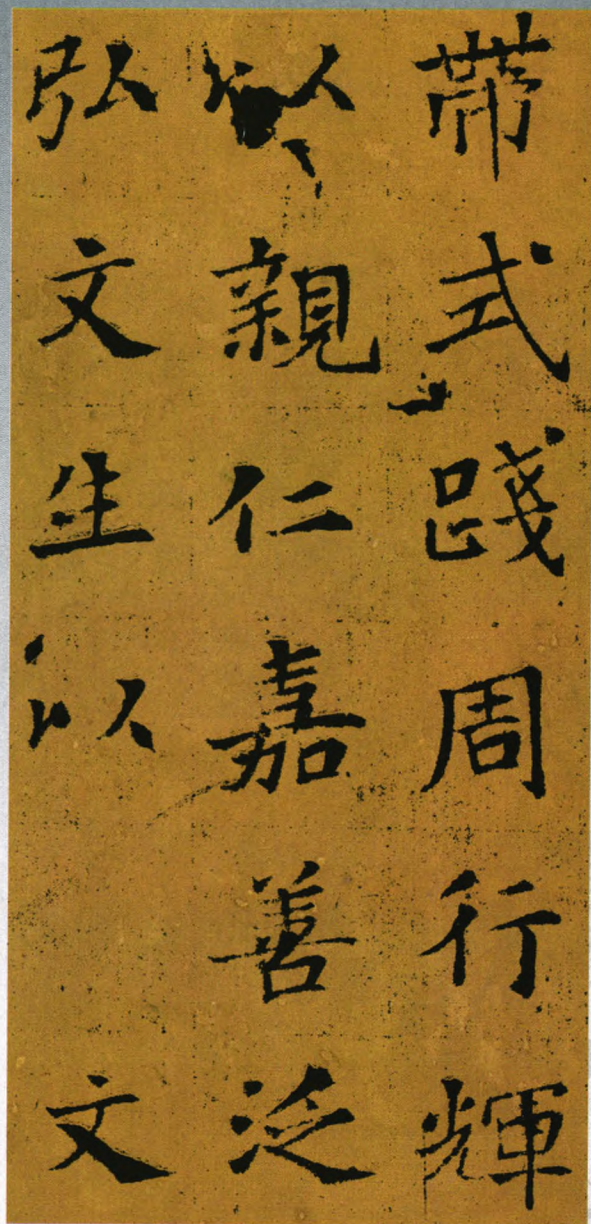 帶式踐周行輝
以親仁嘉善泛
弘文生以文